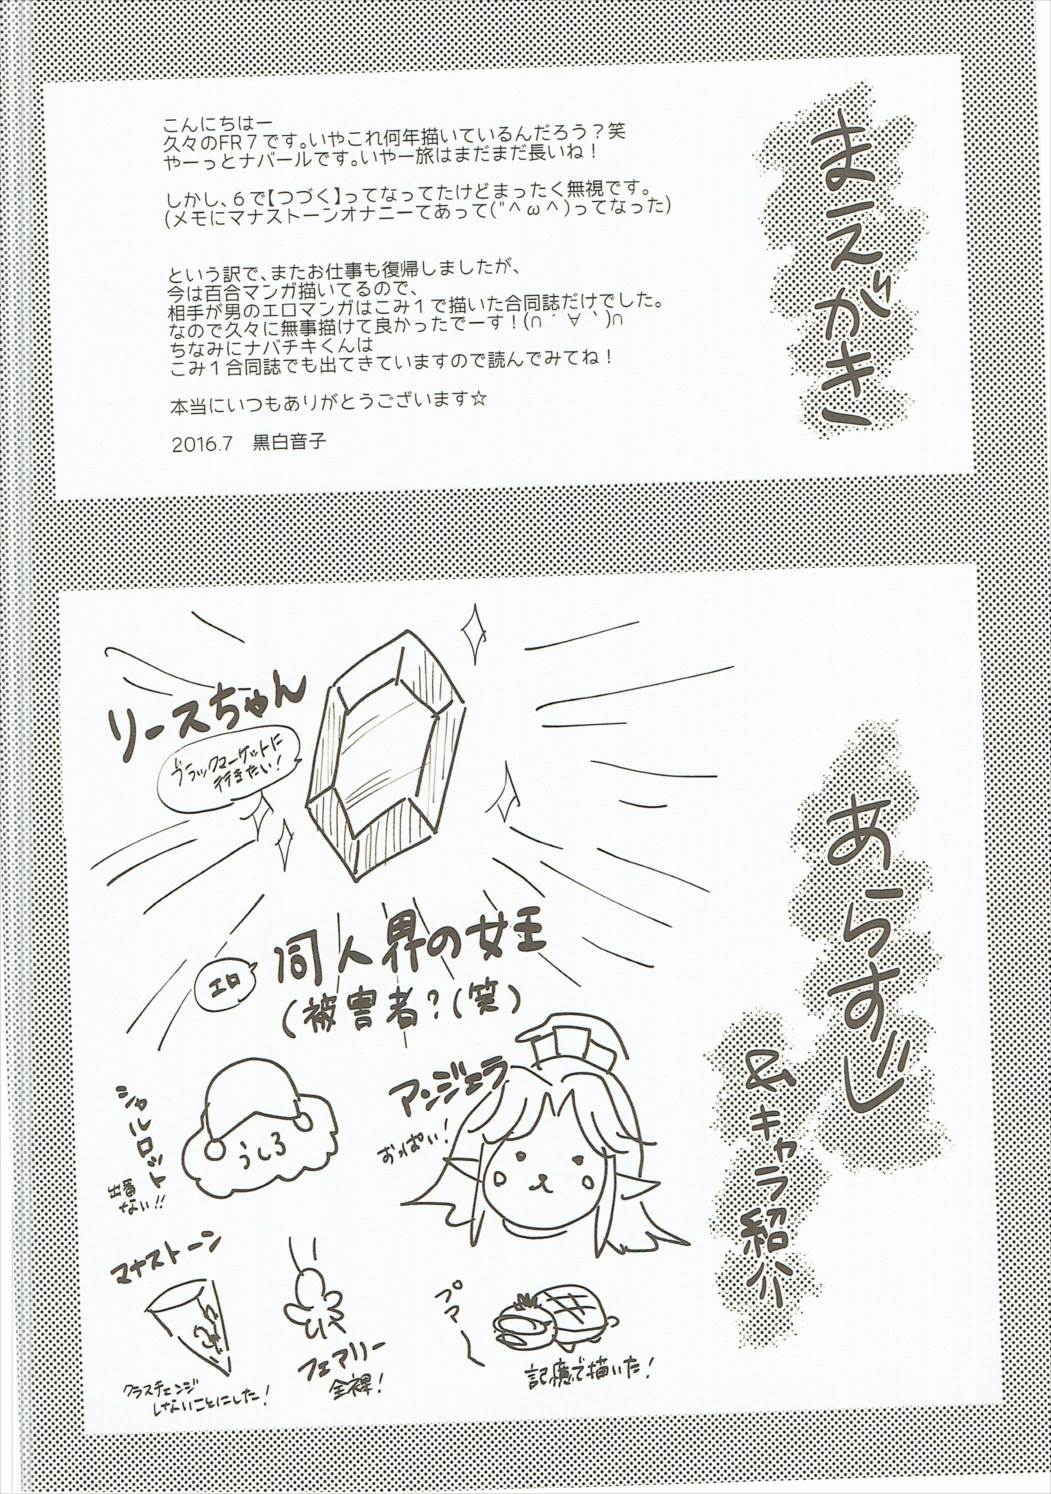 まえがき
こんにちはー
久々のFR７です。いやこれ何年描いているんだろう？笑
やーっとナバールです。いやー旅はまだまだ長いね！
しかし、６で【つづく】ってなってたけどまったく無視です。
(メモにマナストーンオナニーてあって("^ω^)ってなった)
という訳で、またお仕事も復帰しましたが、
今は百合マンガ描いてるので、
相手が男のエロマンガはこみ１で描いた合同誌だけでした。
なので久々に無事描けて良かったでーす！(∩´∀｀)∩
ちなみにナバチキくんは
こみ１合同誌でも出てきていますので読んでみてね！
本当にいつもありがとうございます☆
2016.7　黒白音子
あらすじ
&キャラ紹介
リースちゃん
ブラックマーケットに
行きたい！
エロ
同人界の女王
(被害者？(笑)
アンジェラ
おっぱい！
シャルロット
出番
ない!!
うしろ
マナストーン
クラスチェンジ
しないことにした！
フェアリー
全裸！
ブマー〜
記憶で描いた！